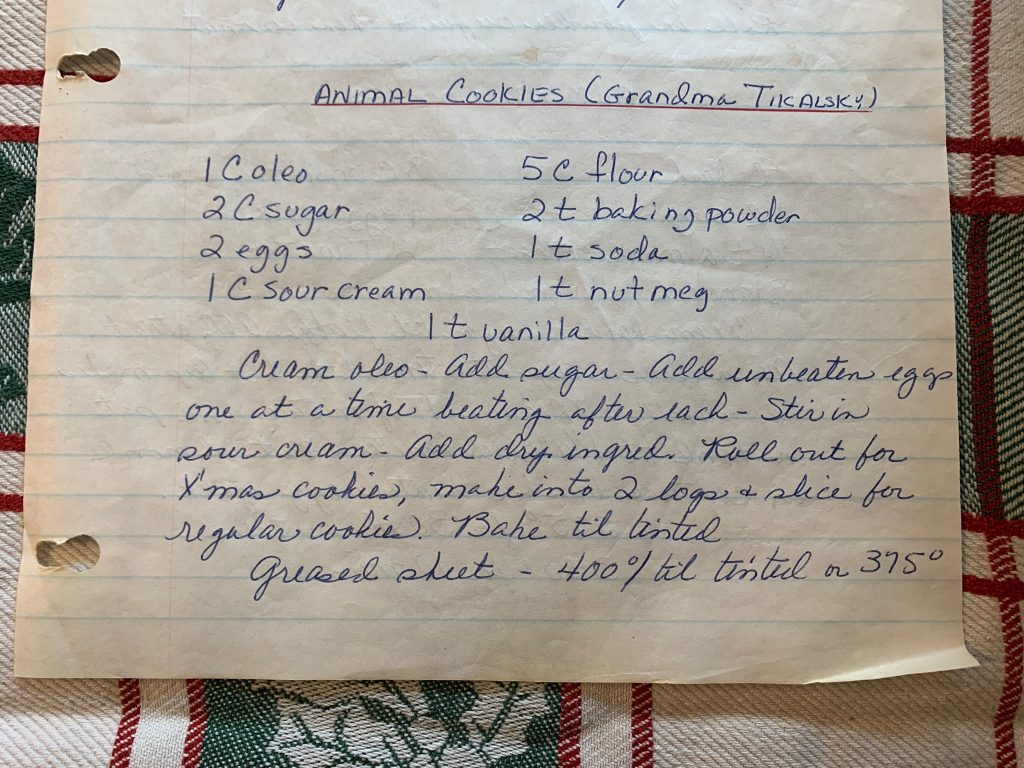 ANIMAL COOKIES (Grandma TIKALSKY)
1 C oleo 5 C flour
2 C sugar 2 t baking powder
2 eggs 1 t soda
1 C sour cream 1 t nutmeg
1 t vanilla
Cream oleo - Add sugar - Add unbeaten eggs
one at a time beating after each - Stir in
sour cream - Add dry ingred. Roll out for
X'mas cookies, make into 2 logs & slice for
regular cookies. Bake til tinted
Greased sheet - 400°/ til tinted or 375°